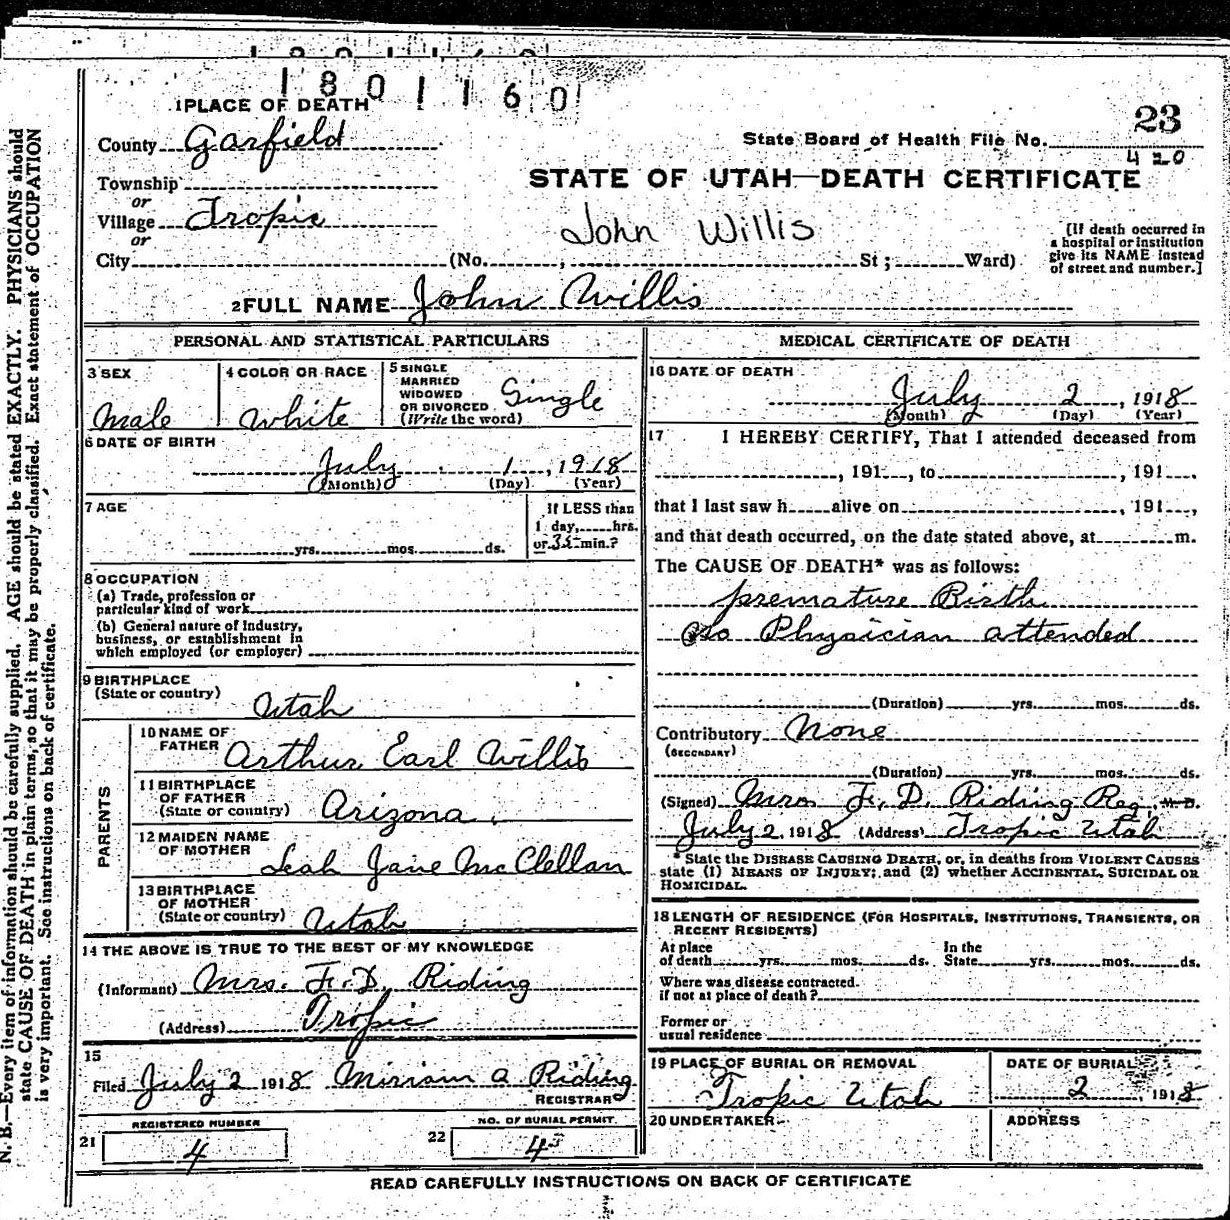 1801160
1 PLACE OF DEATH
23
County Garfield
State Board of Health File No.
420
Township
STATE OF UTAH—DEATH CERTIFICATE
or
Village Tropic
John Willis
or
City (No. , St ; Ward)
[If death occurred in a hospital or institution give its NAME instead of street and number.]
2 FULL NAME John Willis
PERSONAL AND STATISTICAL PARTICULARS
3 SEX
Male
4 COLOR OR RACE
White
5 SINGLE
MARRIED
WIDOWED
OR DIVORCED
(Write the word)
Single
6 DATE OF BIRTH
July 1, 1918
(Month) (Day) (Year)
7 AGE
If LESS than
1 day, hrs.
yrs. mos. ds.
or 35 min.?
8 OCCUPATION
(a) Trade, profession or
particular kind of work
(b) General nature of Industry,
business, or establishment in
which employed (or employer)
9 BIRTHPLACE
(State or country)
Utah
PARENTS
10 NAME OF
FATHER
Arthur Earl Willis
11 BIRTHPLACE
OF FATHER
(State or country)
Arizona
12 MAIDEN NAME
OF MOTHER
Leah Jane McClellan
13 BIRTHPLACE
OF MOTHER
(State or country)
Utah
14 THE ABOVE IS TRUE TO THE BEST OF MY KNOWLEDGE
(Informant) Mrs. F. D. Riding
(Address) Tropic
15
Filed July 2 1918 Miriam A Riding
REGISTRAR
REGISTERED NUMBER
21 4
NO. OF BURIAL PERMIT.
22 45
MEDICAL CERTIFICATE OF DEATH
16 DATE OF DEATH
July 2, 1918
(Month) (Day) (Year)
17 I HEREBY CERTIFY, That I attended deceased from
, 191 , to , 191 ,
that I last saw h alive on , 191 ,
and that death occurred, on the date stated above, at m.
The CAUSE OF DEATH* was as follows:
premature Birth
No Physician attended
(Duration) yrs. mos. ds.
Contributory None
(SECONDARY)
(Duration) yrs. mos. ds.
(Signed) Mrs F. D. Riding Reg. M. D.
July 2, 1918 (Address) Tropic Utah
*State the DISEASE CAUSING DEATH, or, in deaths from VIOLENT CAUSES
state (1) MEANS OF INJURY; and (2) whether ACCIDENTAL, SUICIDAL OR
HOMICIDAL.
18 LENGTH OF RESIDENCE (FOR HOSPITALS, INSTITUTIONS, TRANSIENTS, OR
RECENT RESIDENTS)
At place
of death yrs. mos. ds.
In the
State yrs. mos. ds.
Where was disease contracted.
if not at place of death?
Former or
usual residence
19 PLACE OF BURIAL OR REMOVAL
Tropic Utah
DATE OF BURIAL
2, 1918
20 UNDERTAKER
ADDRESS
READ CAREFULLY INSTRUCTIONS ON BACK OF CERTIFICATE
N. B.—Every item of information should be carefully supplied. AGE should be stated EXACTLY. PHYSICIANS should
state CAUSE OF DEATH in plain terms, so that it may be properly classified. Exact statement of OCCUPATION
is very important. See instructions on back of certificate.